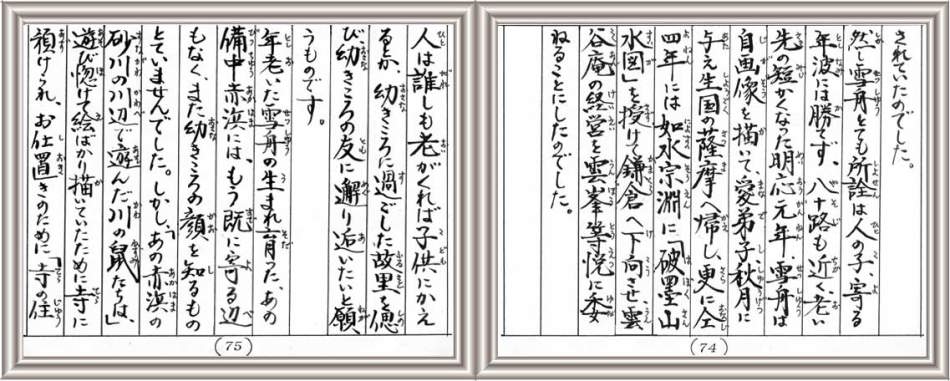 されていたのでした。
然し雪舟とても所詮は人の子、寄る
年波には勝てず、八十路も近く老い
先の短かくなった明応元年、雪舟は
自画像を描いて、愛弟子、秋月に
与え生国の薩摩へ帰し、更に仝
四年には如水宗渊に「破墨山
水図」を授けて鎌倉へ下向させ、雲
谷庵の経営を雲峯等悦に委
ねることにしたのでした。
(74)
人は誰しも老がくれば子供にかえ
るとか、幼きころに過ごした故里を偲
び幼きころの友に邂り逅いたいと願
うものです。
年老いた雪舟の生まれ育った、あの
備中赤浜には、もう既に寄る辺
もなく、また幼きころの顔を知るもの
とていませんでした。しかし、「あの赤浜の
砂川の川辺で遊んだ川の鼠たちは、」
遊び惚けて絵ばかり描いていたために寺に
預けられ、お仕置きのために「寺の住
(75)